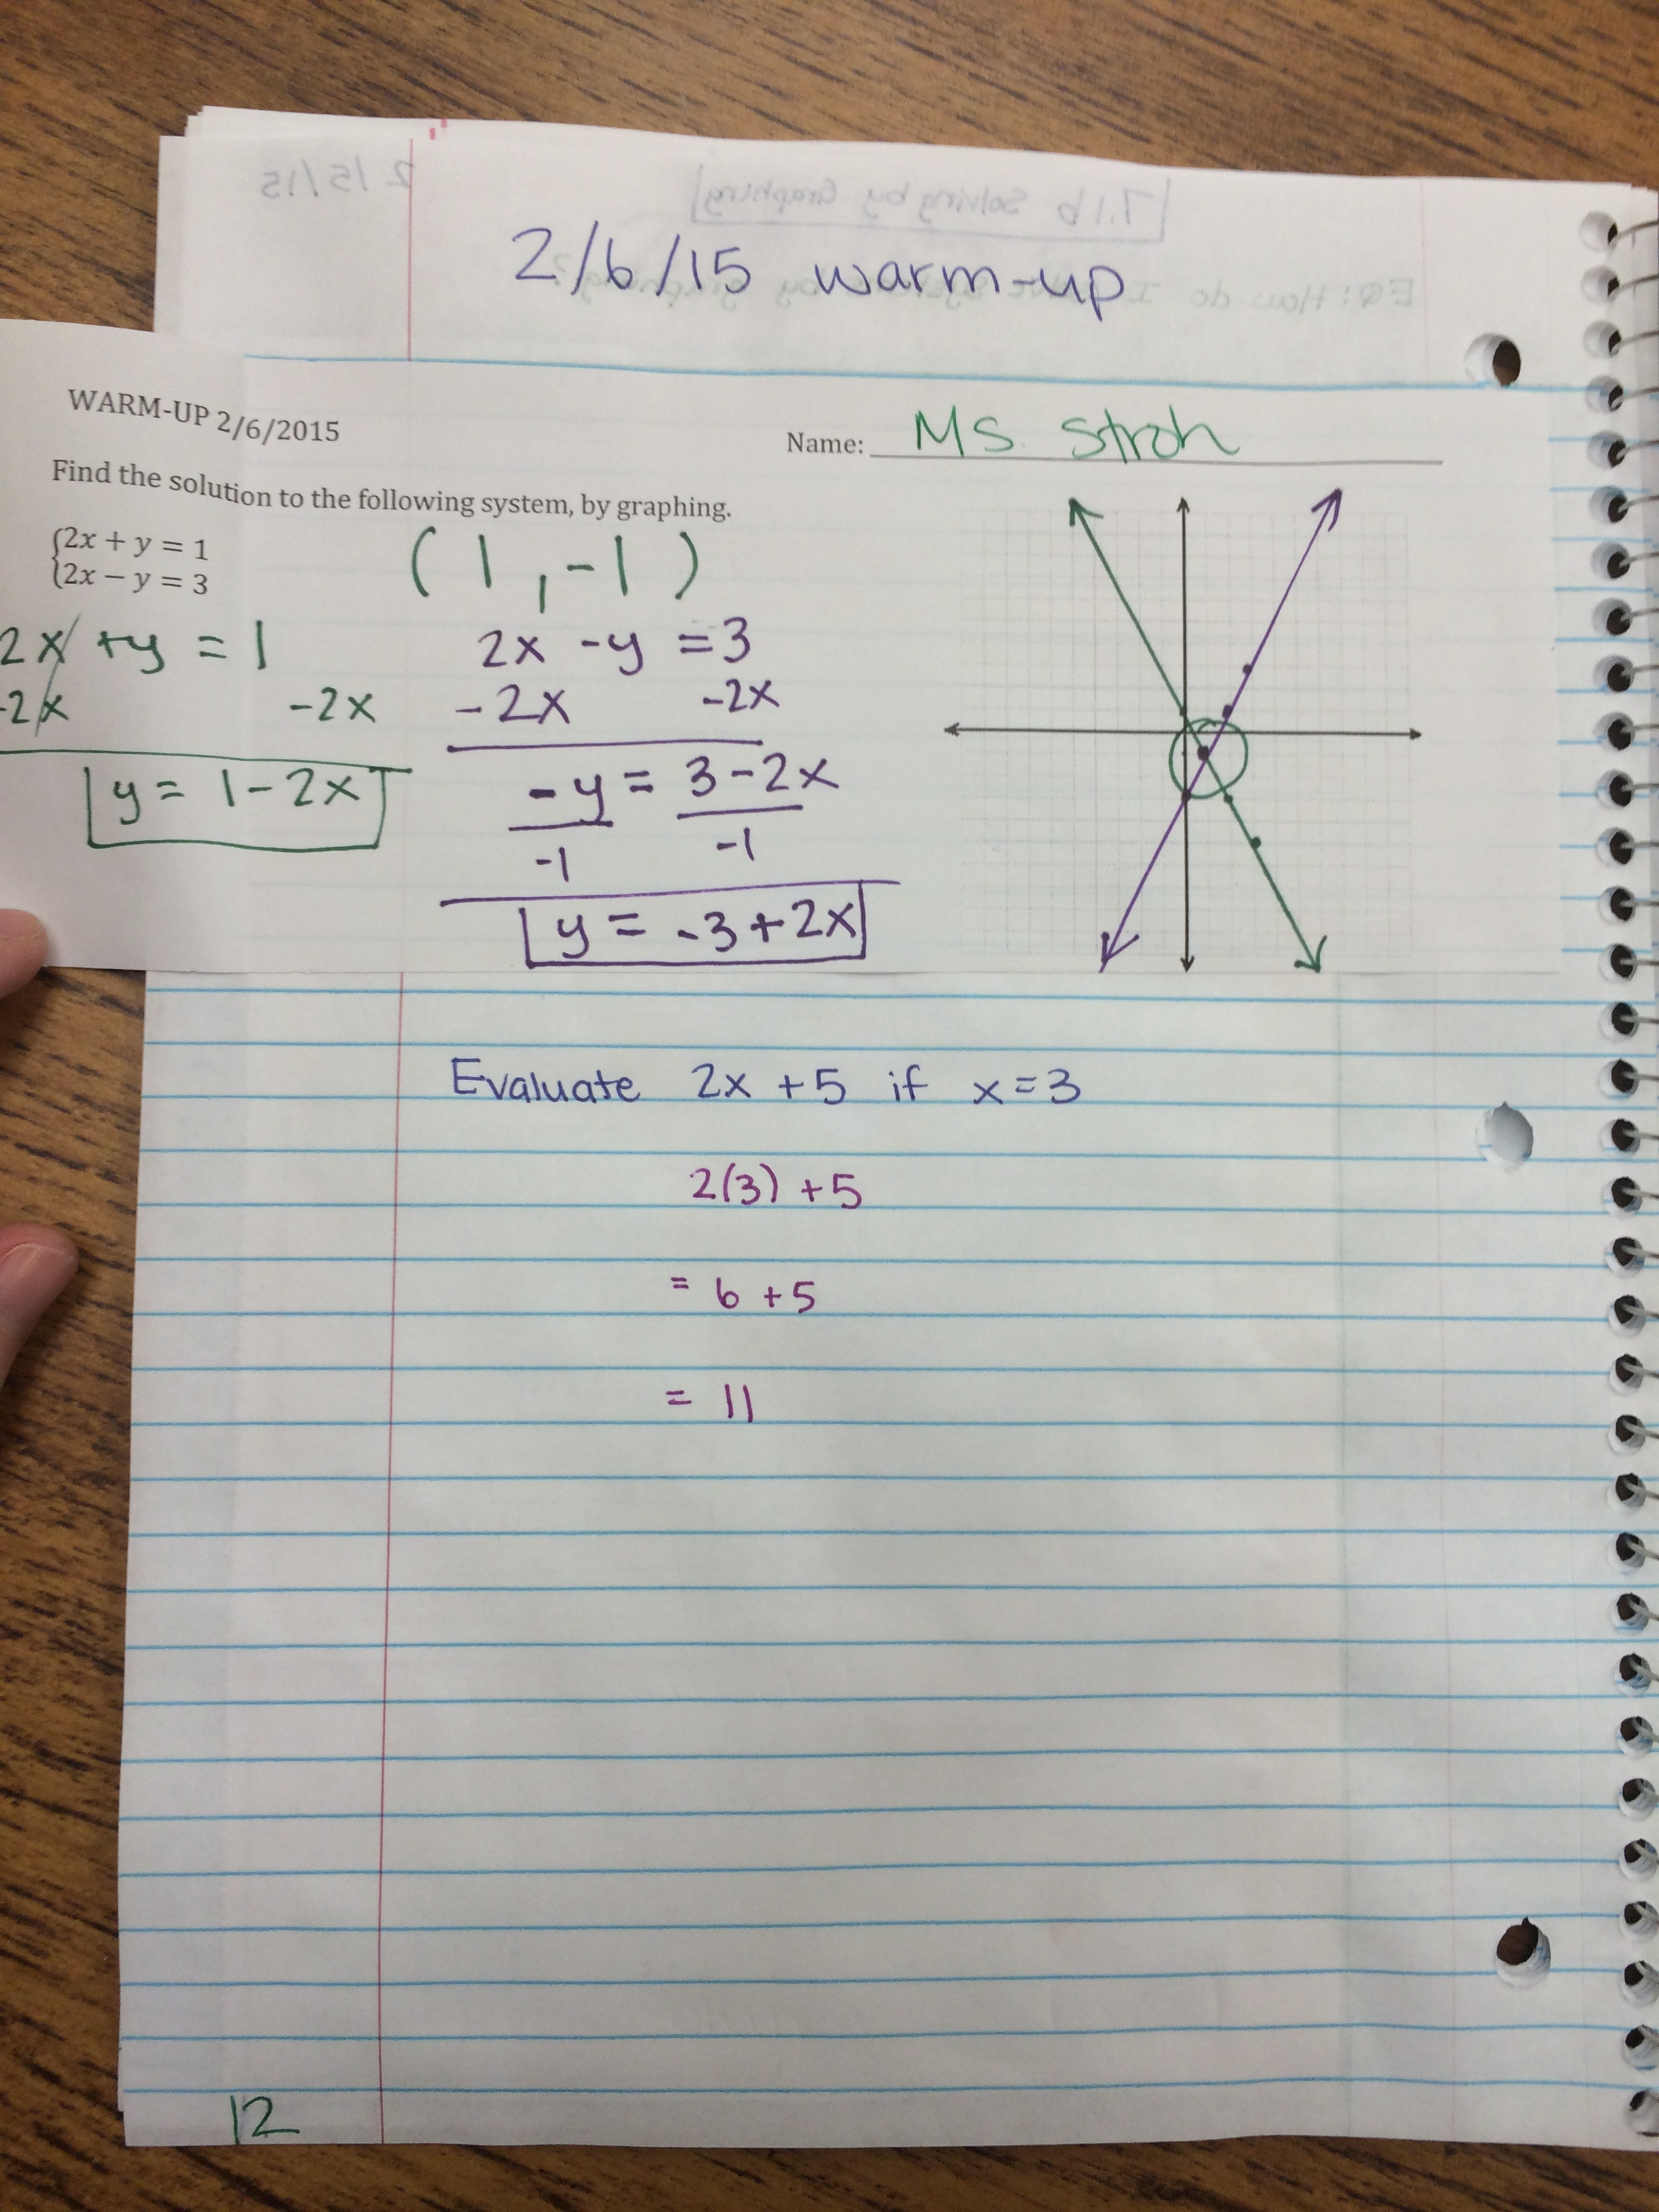 7.1b Solving by Graphing 2/5/15
2/6/15 warm-up
EQ: How do I
WARM-UP 2/6/2015
Name: Ms. Stroh
Find the solution to the following system, by graphing.
2x + y = 1
2x − y = 3
(1, -1)
2x + y = 1
-2x -2x
y = 1 - 2x
2x - y = 3
-2x -2x
-y = 3 - 2x
-1 -1
y = -3 + 2x
Evaluate 2x + 5 if x = 3
2(3) + 5
= 6 + 5
= 11
12